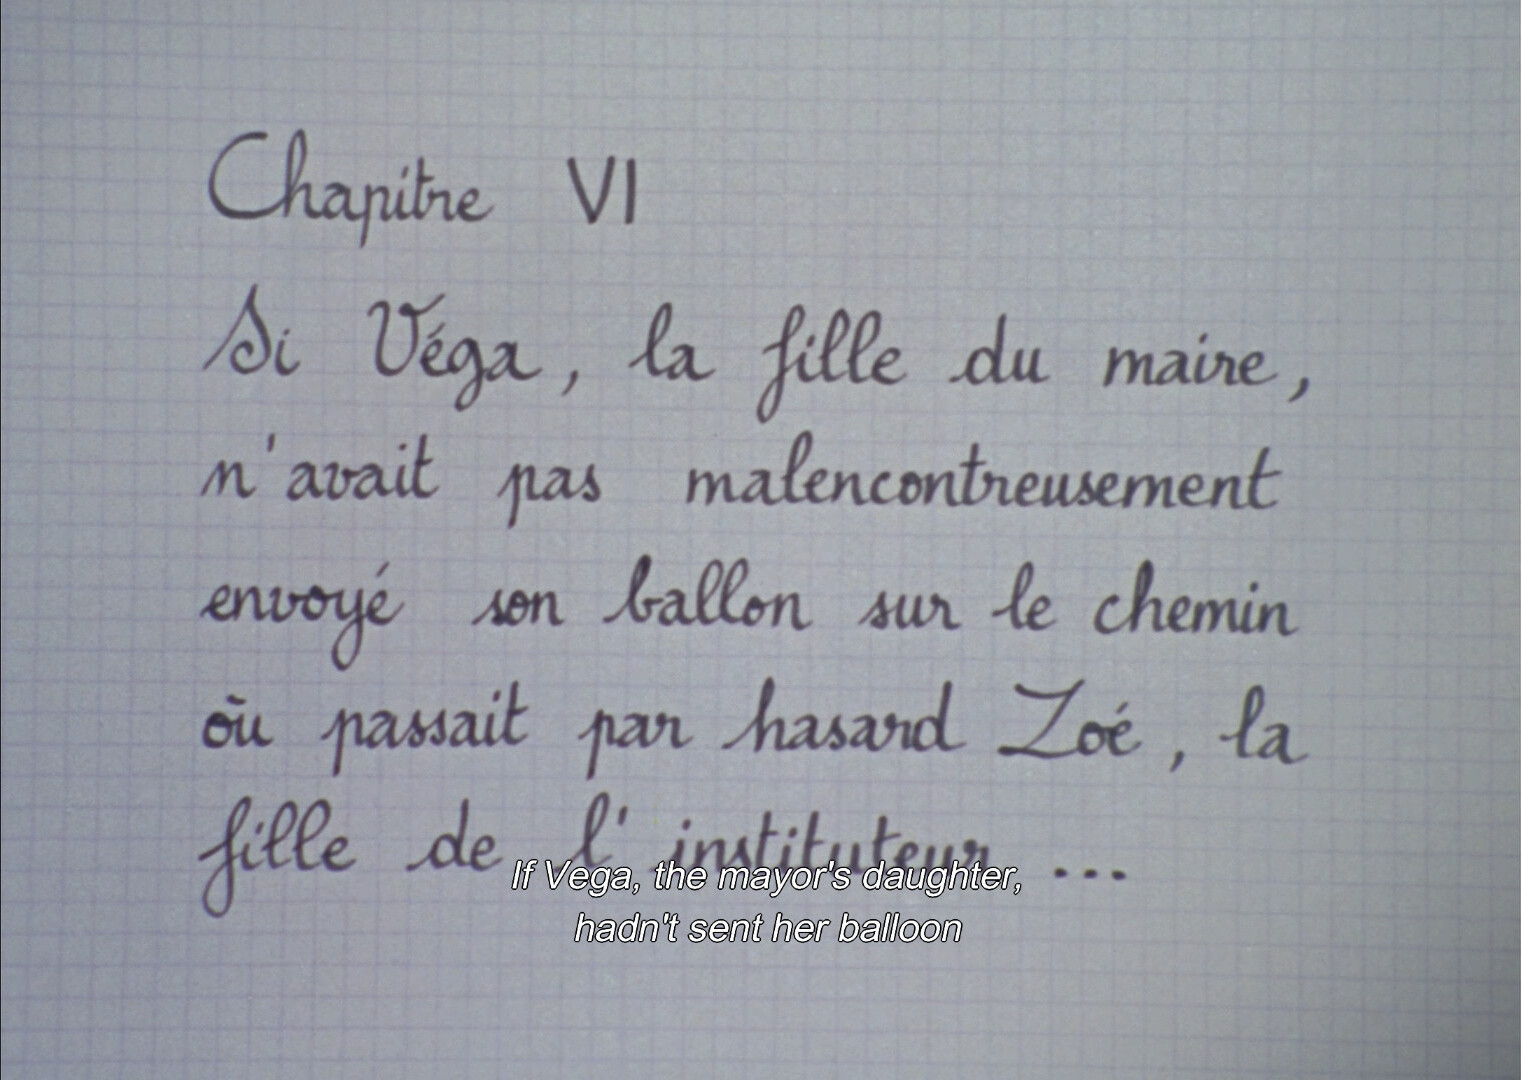 Chapitre VI
Si Véga, la fille du maire,
n'avait pas malencontreusement
envoyé son ballon sur le chemin
où passait par hasard Zoé, la
fille de l'instituteur ...
If Vega, the mayor's daughter,
hadn't sent her balloon